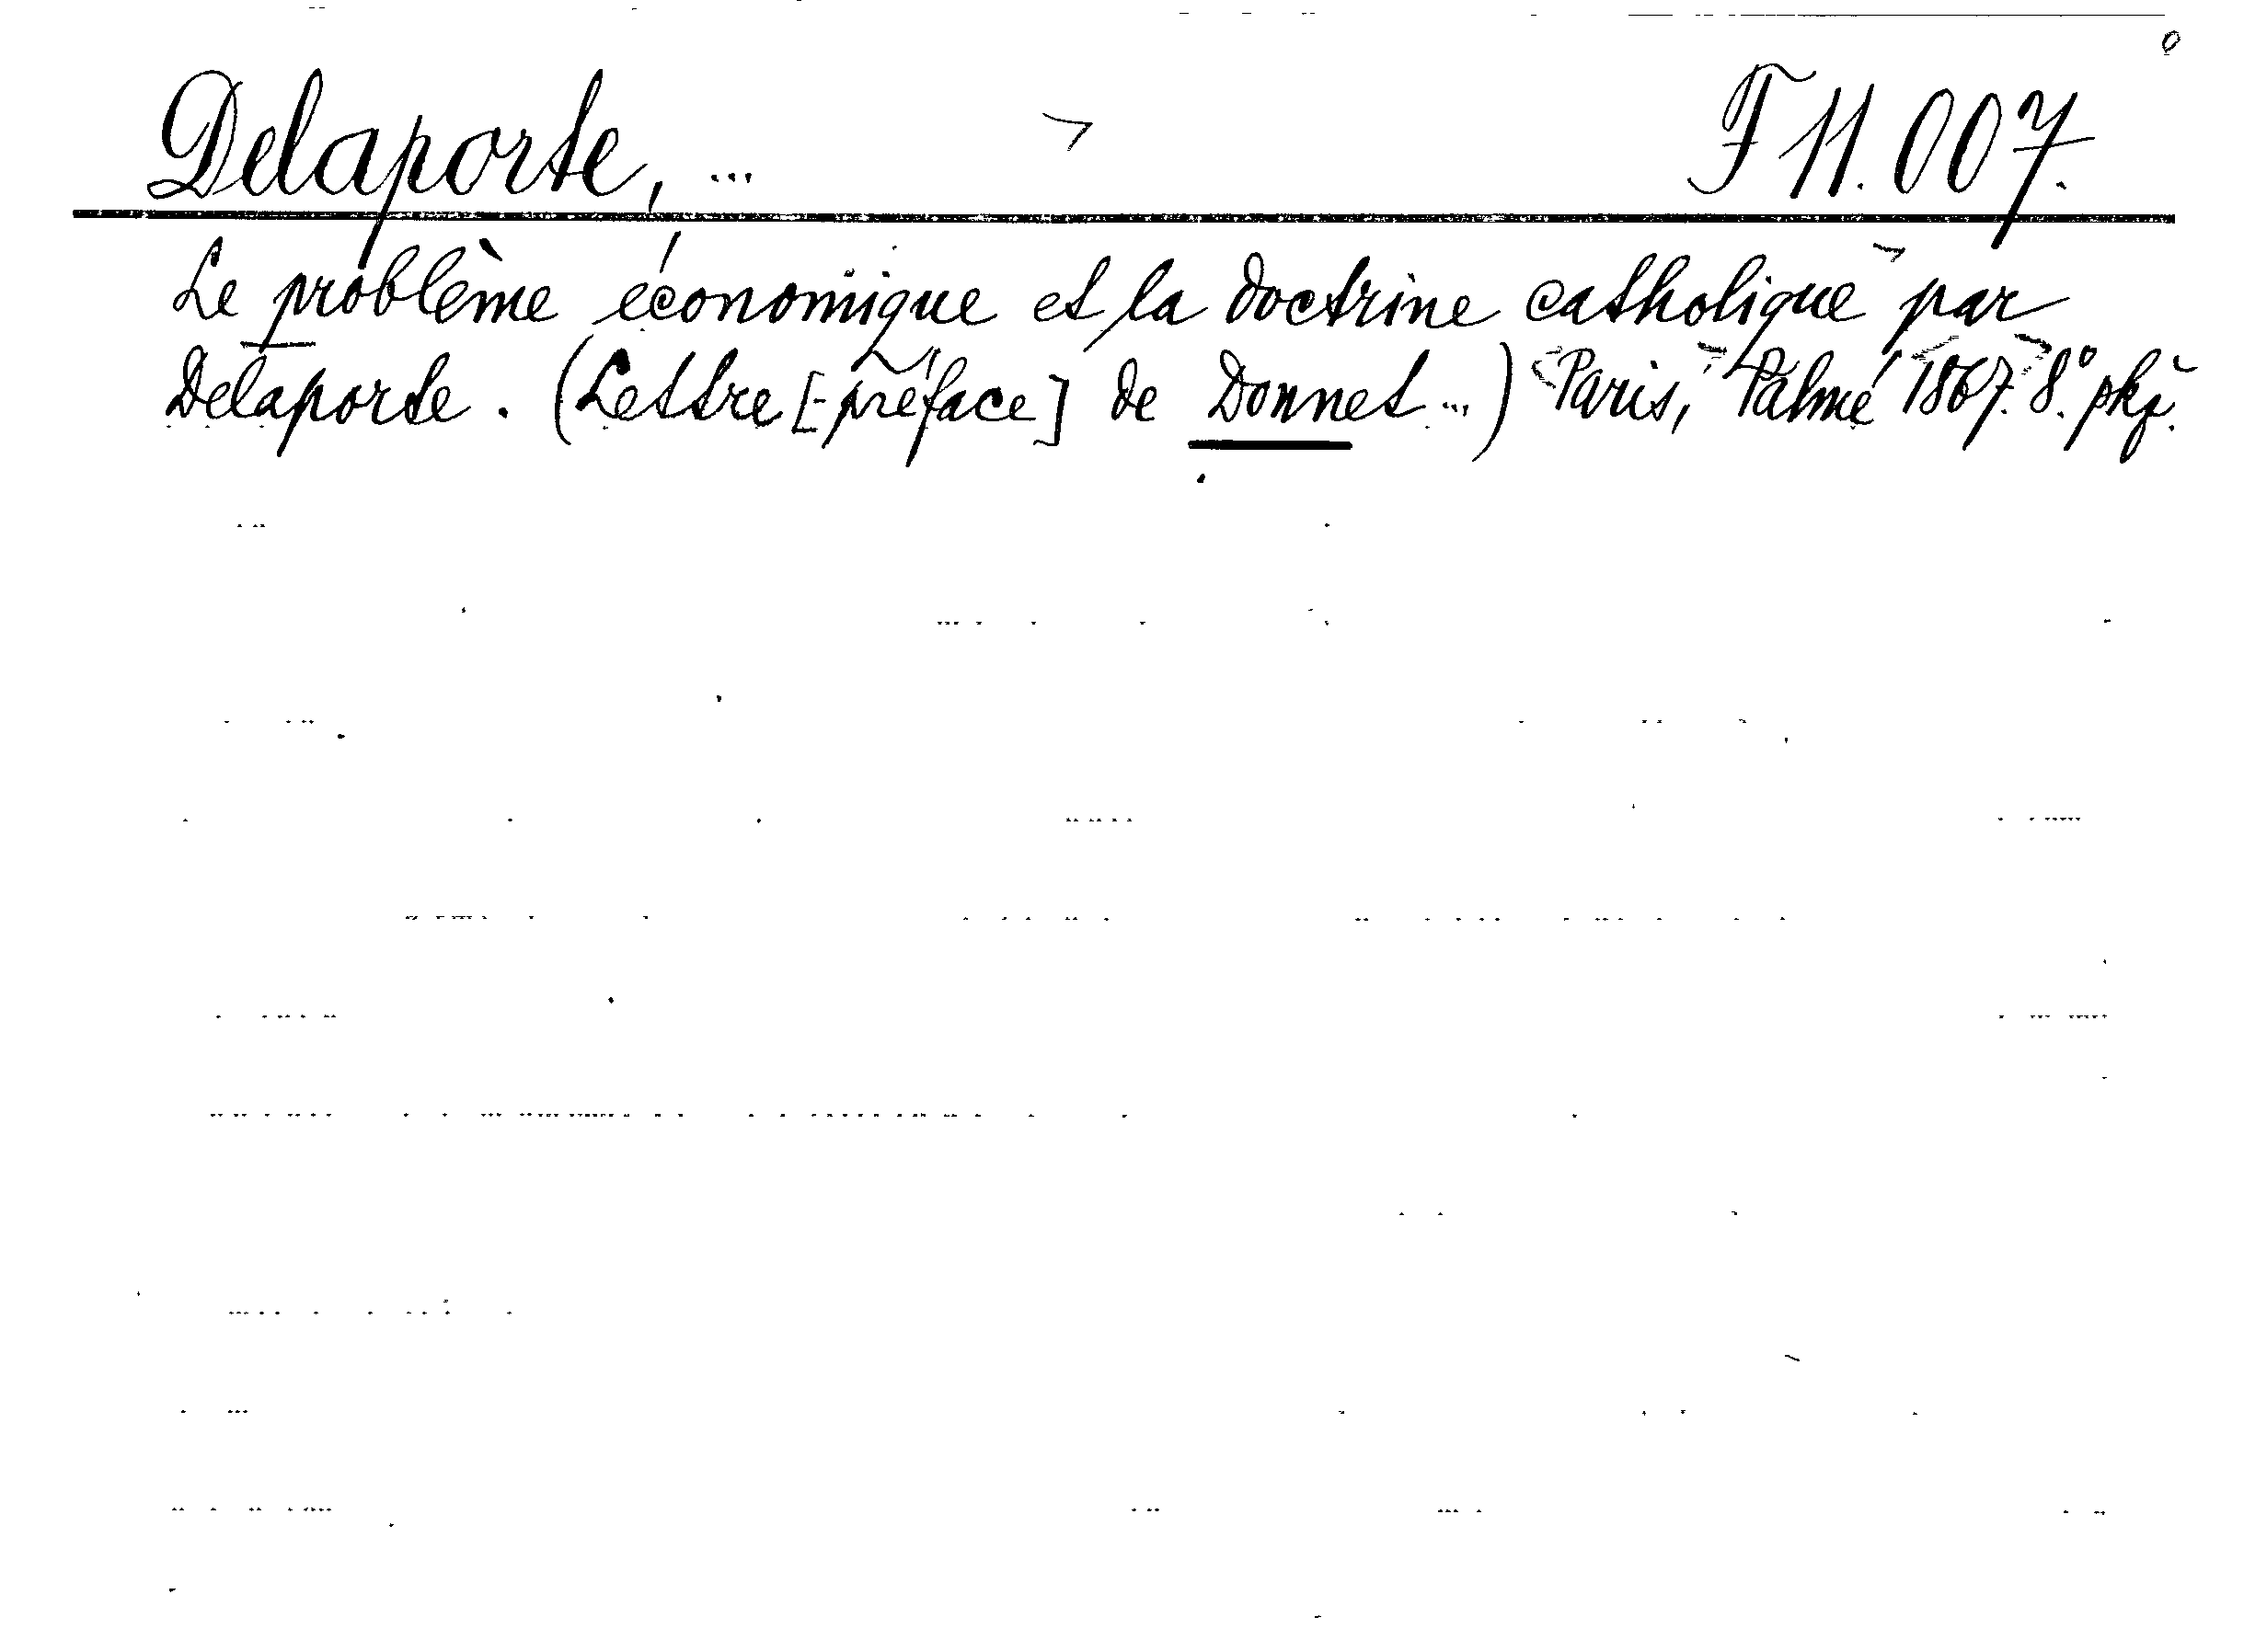 Delaporte, ... F 11.007.
Le problème économique et la doctrine catholique par
Delaporte. (Lettre [-préface] de Donnet ...) Paris, Palmé 1867. 8° pkg.